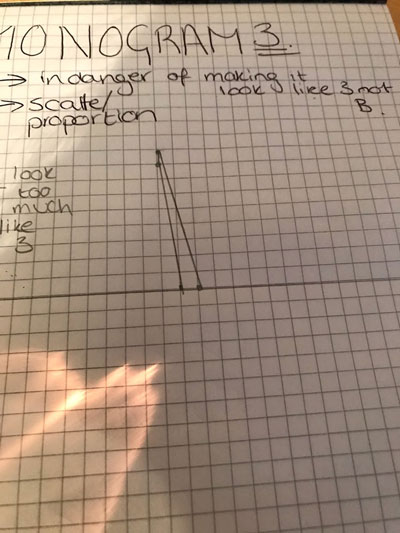 MONOGRAM 3.
→ in danger of making it
look like 3 not
B.
→ scale/
proportion
look
too
much
like
3